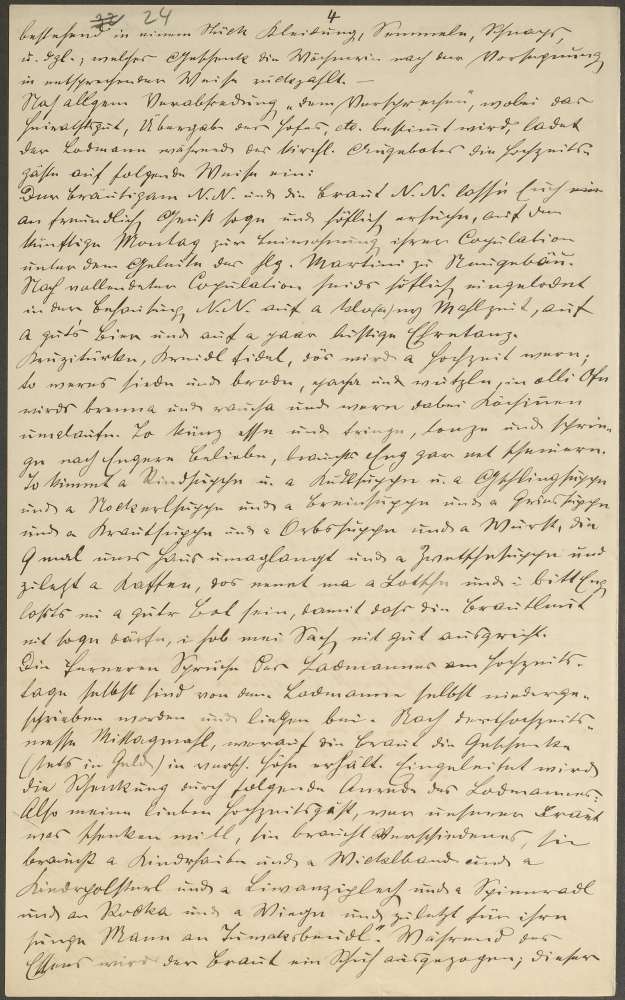 22 24 4
bestehend in einem Stück Kleidung, Semmeln, Schnaps,
u. dgl., welches Geschenk die Wöchnerin nach der Vorsegnung
in entsprechender Weise rückzahlt. —
Nach allgem Verabredung „dem Versprechen", wobei das
Heiratsgut, Übergabe des Hofes, etc. bestimt wird, ladet
der Ladmann während des kirchl. Angebotes die Hochzeits-
gäste auf folgende Weise ein:
Der Bräutigam N. N. und die Braut N. N. lass'n Euch
an freundlich Gruß sagn und höflich ersuchn, auf den
künftign Montag zur Beiwohnung ihrer Copulation
unter dem Geleite des hlg. Martini zu Neugebäu.
Nach vollendeter Copulation seids höflich eingeladnt
in der Behausung N. N. auf a Mahlzeit, auf
a guts Bier und auf a paar lustige Ehretanz.
Kruzitürkn, Kreidl fidel, dös wird a Hochzeit wern,
to werns siedn und brodn, und wutzln, in alli Ofn
wirds brenna und raucha und wern dabei Köchinen
umelaufn. To künz essn und trinzn, tanzn und sprin-
gn nach Engern Belieben, brauchts Eng gar net scheuern.
To kimmt a Rindsuppn u. a Nudlsuppn u. a Gschlingsuppn
und a Nockerlsuppn und a Breinsuppn und a Griessuppn
und a Krautsuppn und a Orbssuppn und a Wurst, die
9 mal ums Haus umaglangt und a Zwetschksuppn und
zuletzt a Kaffen, dos nennt ma a Lotksn und i bitt Eng,
losts mi a guter Bot sein, damit dass die Brautleut
nit sogn därfn, i hob mei Sach nit gut ausgricht.
Die ferneren Sprüche des Ladmannes am Hochzeits-
tage selbst sind von dem Ladmanne selbst niederge-
schrieben worden und liegen bei. Nach der Hochzeits-
messe Mittagmahl, worauf die Braut die Geschenke
(stets in Geld) in versch. Höhe erhält. Eingeleitet wird
die Schenkung durch folgende Anrede des Ladmannes:
Also meine lieben Hochzeitsgäst, wer unserer Braut
was schenken will, sie braucht Verschiedenes, sie
braucht a Kinderhaibn und a Wickelband und a
Kinderpolsterl und a Liwanziplech und a Spinnradl
und an Rocka und a Wiegn und zuletzt für ihrn
jungn Mann an Tuwaksbeudl." Während des
Essens wird der Braut ein Schuh ausgezogen; dieser